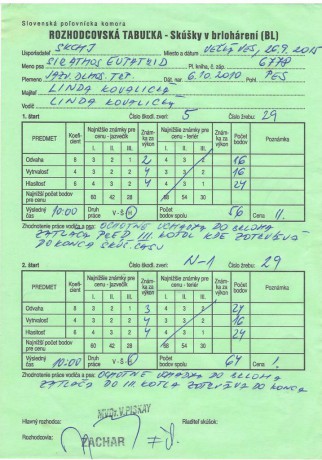 Slovenská poľovnícka komora
ROZHODCOVSKÁ TABUĽKA - Skúšky v brlohárení (BL)
Usporiadateľ SKCHJ Miesto a dátum VEĽKÁ VES, 26.9.2015
Meno psa SIRATHOS EUTATRID Pl. kniha, č. záp. 6778
Plemeno Dát. nar. 6.10.2010 Pohl. PES
Majiteľ LINDA KOVALICKÁ
Vodič LINDA KOVALICKÁ
1. štart Číslo škodl. zver. 5 Číslo žrebu: 29
PREDMET Koeficient Najnižšie známky pre cenu - jazvečík Známka za výkon Najnižšie známky pre cenu - teriér Známka za výkon Počet bodov Poznámka
I. II. III. I. II. III.
Odvaha 8 3 2 1 2 4 3 2 16
Vytrvalosť 4 3 2 1 4 4 2 1 16
Hlasitosť 6 4 3 2 4 4 3 1 24
Najnižší počet bodov pre cenu 60 42 28
Výsledný čas 10:00 Druh práce V-Š- Počet bodov spolu 56 Cena II.
Zhodnotenie práce vodiča a psa: OCHOTNE VCHÁDZA DO BRLOHA
ZATLÁČA PRED III. KOTOL KDE ZOTRVÁVA
DO KONCA SKÚŠ. ČASU
2. štart Číslo škodl. zver. N-1 Číslo žrebu: 29
PREDMET Koeficient Najnižšie známky pre cenu - jazvečík Známka za výkon Najnižšie známky pre cenu - teriér Známka za výkon Počet bodov Poznámka
I. II. III. I. II. III.
Odvaha 8 3 2 1 3 4 3 2 24
Vytrvalosť 4 3 2 1 4 4 2 1 16
Hlasitosť 6 4 3 2 4 4 3 1 24
Najnižší počet bodov pre cenu 60 42 28
Výsledný čas 10:00 Druh práce V-Š- Počet bodov spolu 64 Cena I.
Zhodnotenie práce vodiča a psa: OCHOTNE VCHÁDZA DO BRLOHA
ZATLÁČA DO III. KOTLA ZOTRVÁVA DO KONCA
Hlavný rozhodca: MVDr. V. PISKAY Riaditeľ skúšok:
Rozhodcovia: ZACHAR